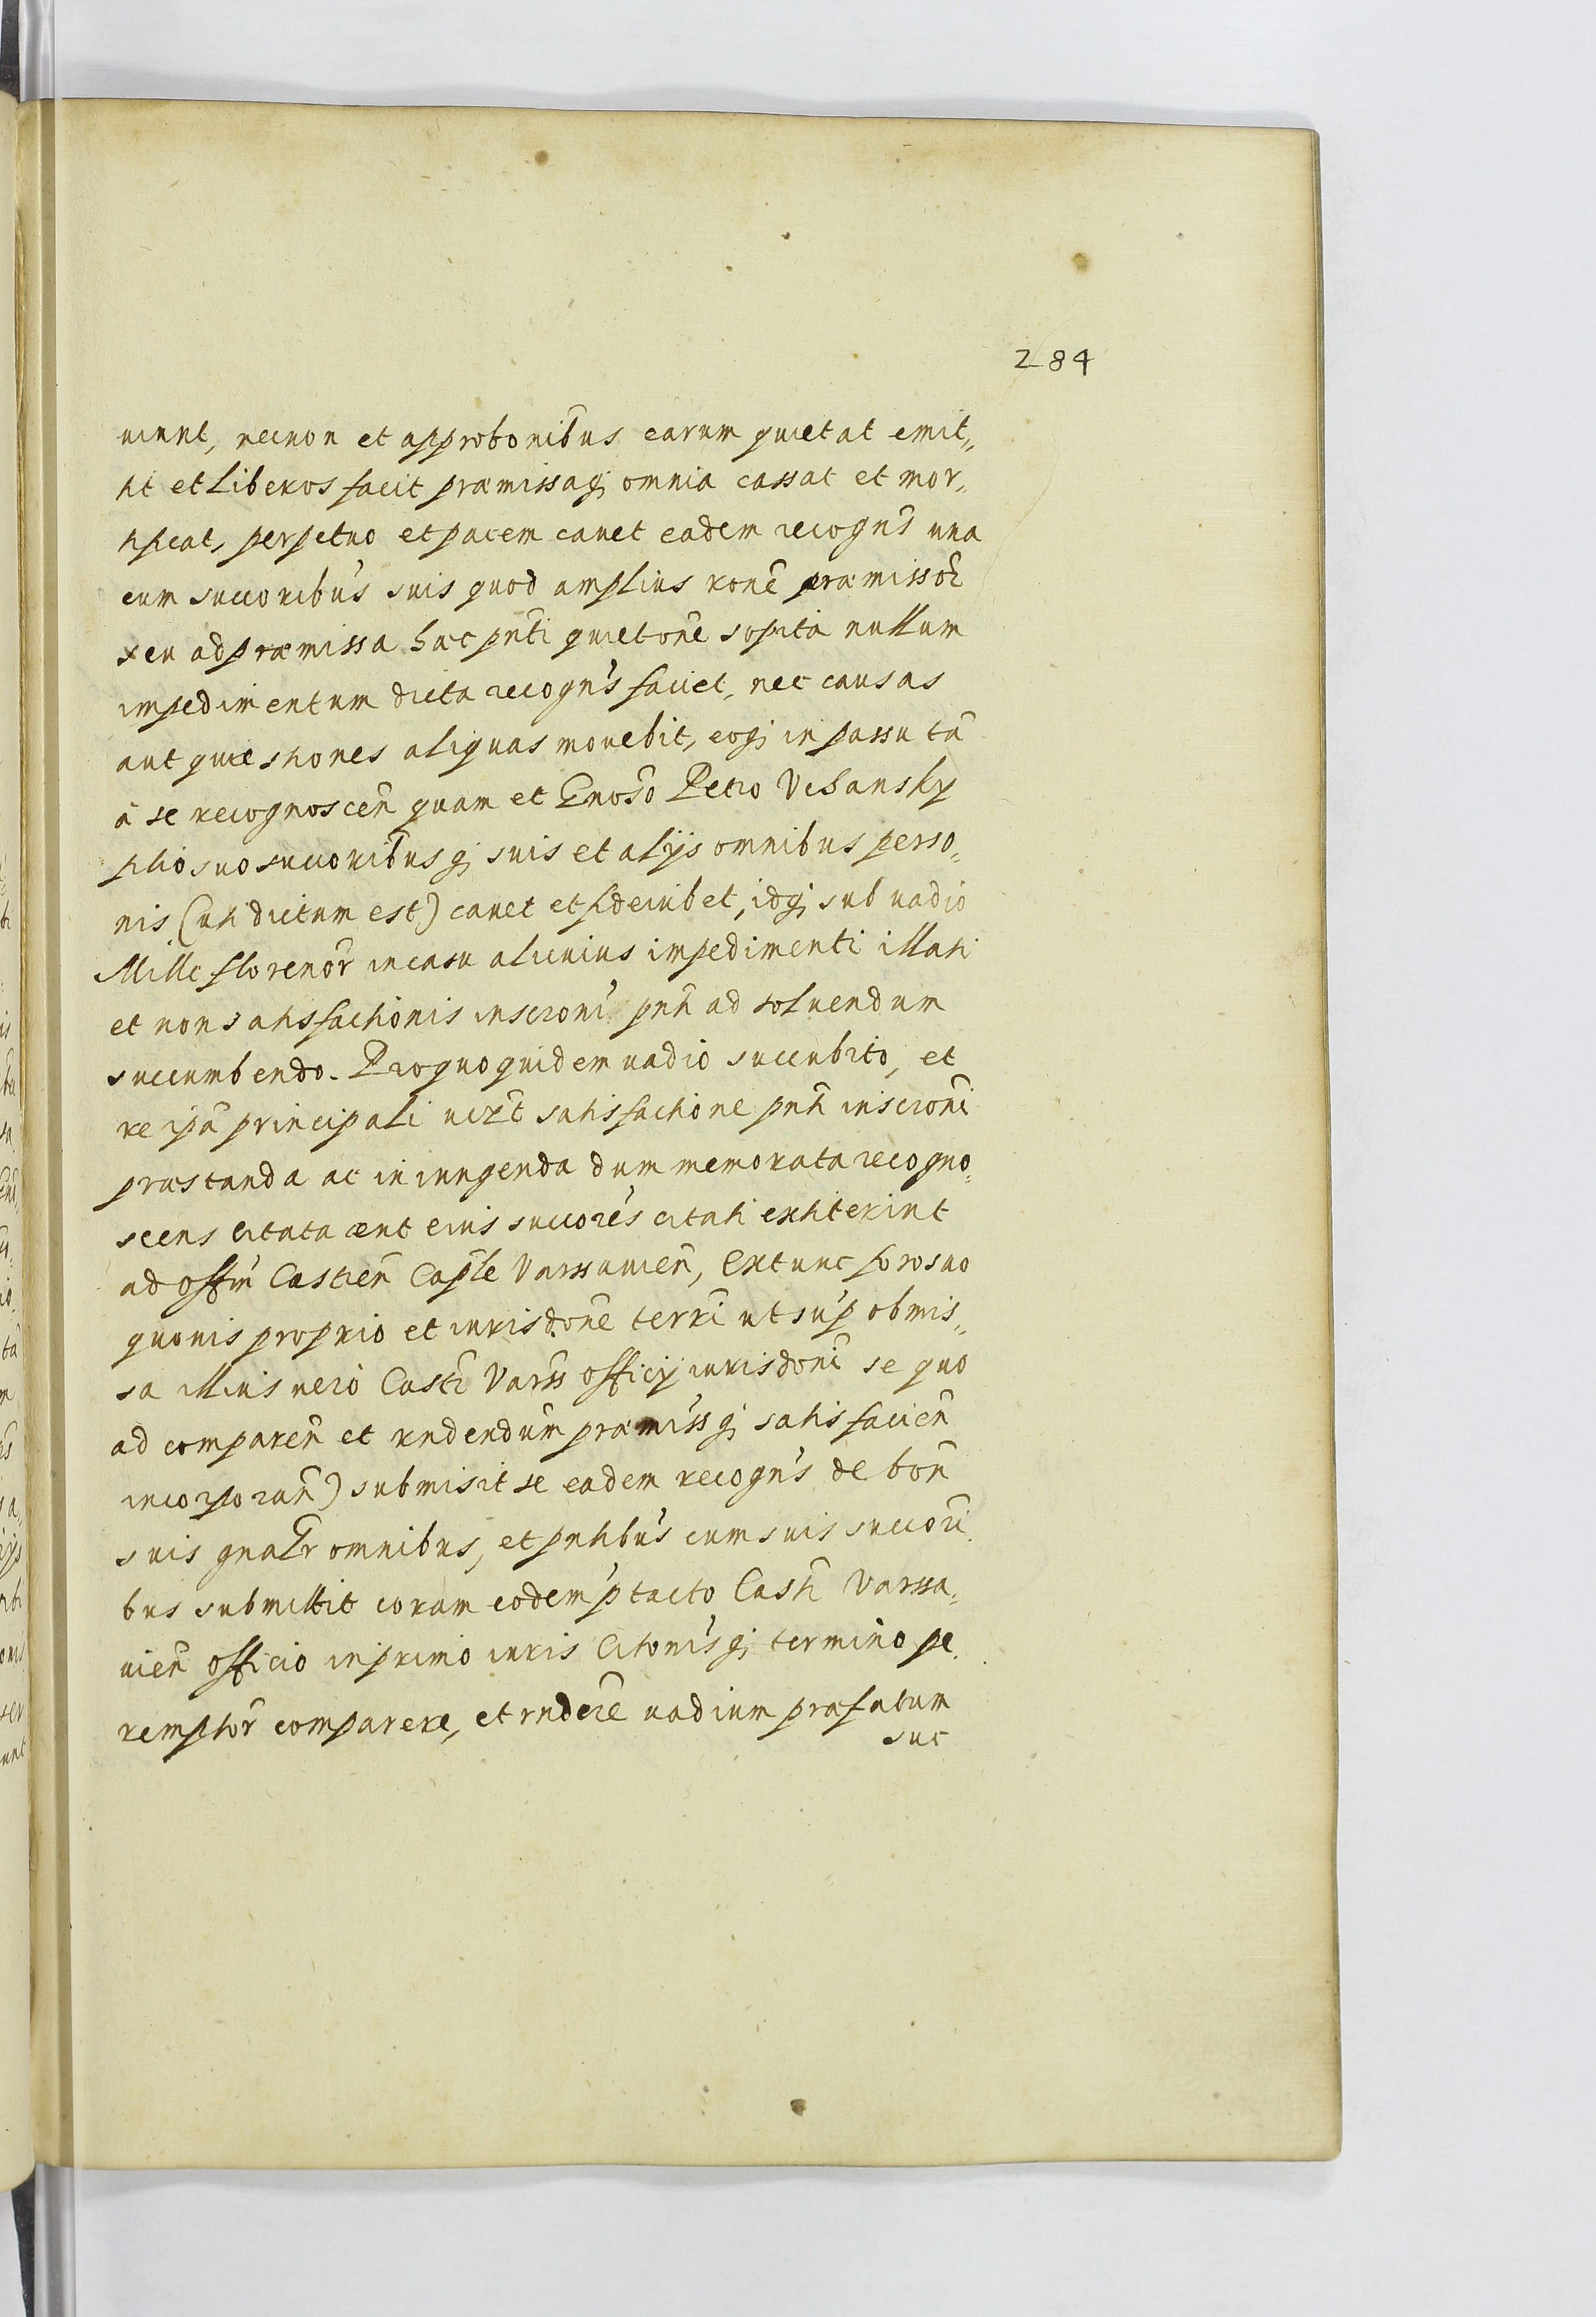 284
uiunt, necnon et approbonibus earum quietat emit„
tit et liberos facit præmissaq; omnia cassat et mor„
tificat, perpetuo et pacem cauet eadem recogns una
cum succoribus suis quod amplius rone præmissor
seu ad præmissa hac pnti quietone sopita nullum
impedimentum dicta recogns faciet, nec causas
aut quæstiones aliquas mouebit, eoq; in passu tã
à se recognoscen quam et Gnoso Petro Vchansky
filio suo succoribusq; suis et alijs omnibus perso„
nis (uti dictum est) cauet et fideiubet, idq; sub uadio
Mille florenor in casu alicuius impedimenti illati
et non satisfactionis inscroni pnti ad soluendum
succumbendo. Pro quo quidem uadio succubito, et
re ipa principali uizt satisfactione pnti inscroni
præstanda ac iniungenda dum memorata recogno„
scens citata aut eius succores citati extiterint
ad offm Castren Caple Varssauien, Extunc foro suo
quouis proprio et iurisdone terri ut sup obmis„
sa illius uero Castr Varss officij iurisdoni se quo
ad comparen et rndendum præmissq; satisfacien
incorporan) submisit se eadem recogns de bon
suis gnalr omnibus, et pntibus cum suis succori„
bus submittit coram eodem ptacto Castr Varssa„
uien officio in primo iuris Citonisq; termino pe„
remptor comparere, et rndere uadium præfatum
suc